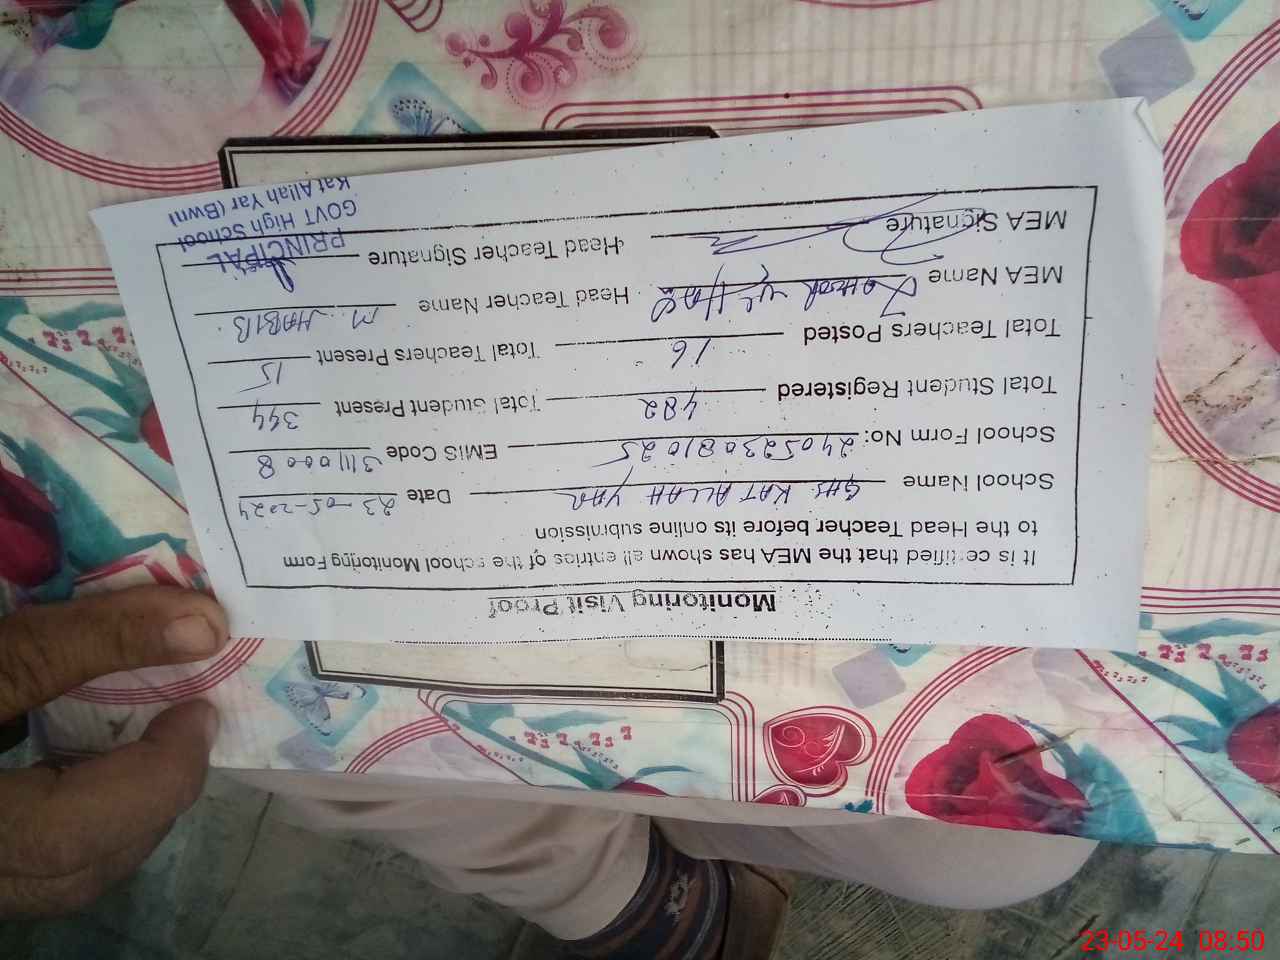 Monitoring Visit Proof
It is certified that the MEA has shown all entries of the school Monitoring Form
to the Head Teacher before its online submission
School Name GHS KAT ALLAH YAR Date 23-05-2024
School Form No: 240523081025 EMIS Code 31110008
Total Student Registered 482 Total Student Present 344
Total Teachers Posted 16 Total Teachers Present 15
MEA Name Head Teacher Name M. HABIB
MEA Signature Head Teacher Signature
PRINCIPAL
GOVT High School
Kat Allah Yar (Bwn)
23-05-24 08:50